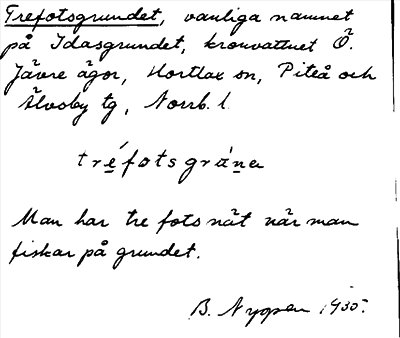 Trefotsgrundet, vanliga namnet
på Idasgrundet, kronvattnet Ö.
Jävre ägor, Hortlax sn, Piteå och
Älvsby tg, Norrb. l.
tréfotsgrána
Man har tre fots nät när man
fiskar på grundet.
B. Nygren 1935.